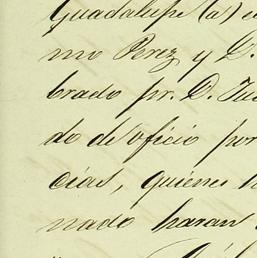 Guadalupe (a) el
mo Perez y D.
brado pr. D. Jua
do de oficio por
cias, quienes h
nado haran